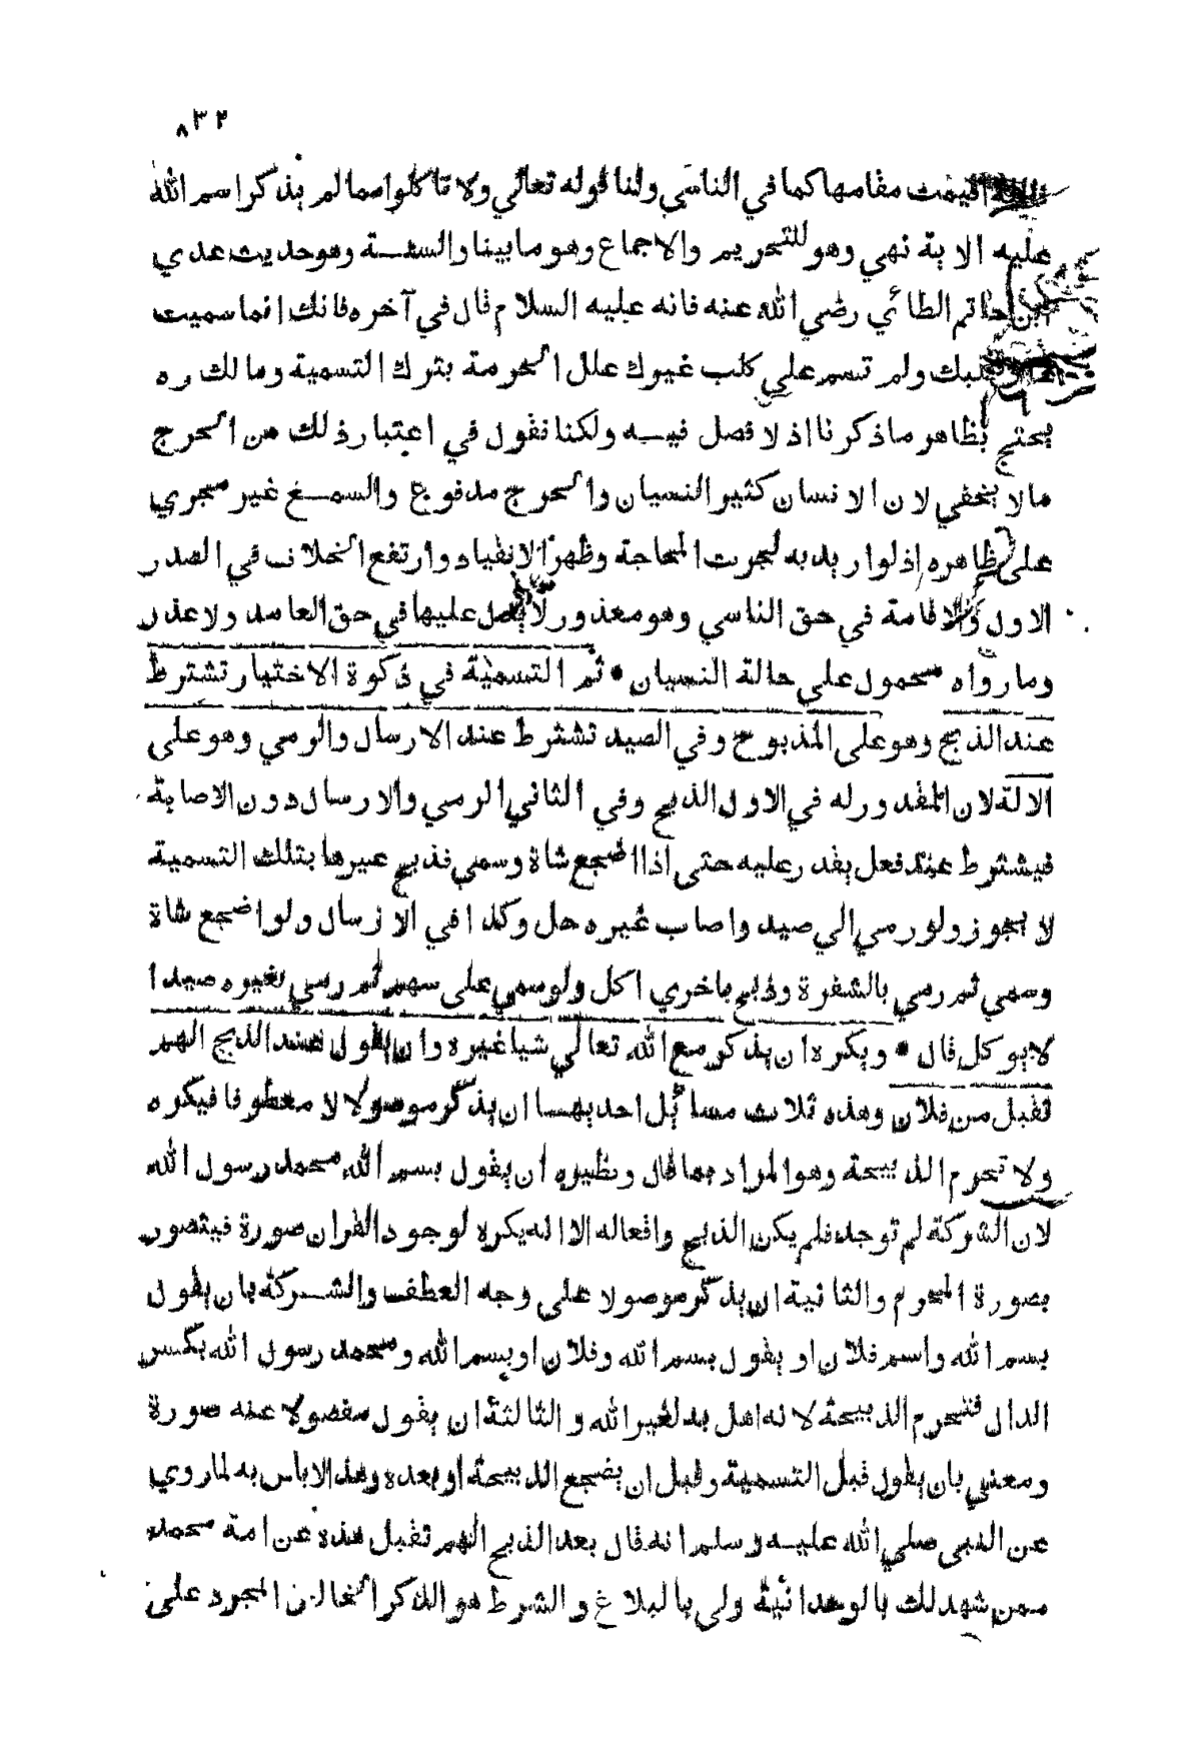 ٨٣٢
اقيمت مقامها كما في الناسي ولنا قوله تعالي ولا تاكلوا مما لم يذكر اسم الله
عليه الاية نهي وهو للتحريم والاجماع وهو ما بينا والسنة وهو حديث عدي
ابن حاتم الطائي رضي الله عنه فانه عليه السلام قال في آخره فانك انما سميت
علي كلبك ولم تسم علي كلب غيرك علل الحرمة بترك التسمية ومالك ره
يحتج بظاهر ما ذكرنا اذ لا فصل فيه ولكنا نقول في اعتبار ذلك من الحرج
ما لا يخفي لان الانسان كثير النسيان والحرج مدفوع والسمع غير مجري
علي ظاهره اذ لو اريد به لجرت المحاجة وظهر الانقياد وارتفع الخلاف في الصدر
الاول والاقامة في حق الناسي وهو معذور لا يدل عليها في حق العامد ولا عذر
وما رواه محمول علي حالة النسيان • ثم التسمية في ذكوة الاختيار تشترط
عند الذبح وهو علي المذبوح وفي الصيد تشترط عند الارسال والرمي وهو علي
الالة لان المقدور له في الاول الذبح وفي الثاني الرمي والارسال دون الاصابة
فيشترط عند فعل يقدر عليه حتي اذا اضجع شاة وسمي فذبح غيرها بتلك التسمية
لا يجوز ولو رمي الي صيد واصاب غيره حل وكذا في الارسال ولو اضجع شاة
وسمي ثم رمي بالشفرة وذبح باخري اكل ولو سمي علي سهم ثم رمي بغيره صيدا
لا يوكل قال • ويكره ان يذكر مع الله تعالي شيا غيره وان يقول عند الذبح الهم
تقبل من فلان وهذه ثلاث مسائل احديها ان يذكر موصولا لا معطوفا فيكره
ولا تحرم الذبيحة وهو المراد بما قال ونظيره ان يقول بسم الله محمد رسول الله
لان الشركة لم توجد فلم يكن الذبح واقعا له الا انه يكره لوجود القران صورة فيتصور
بصورة المحرم والثانية ان يذكر موصولا علي وجه العطف والشركة بان يقول
بسم الله واسم فلان او يقول بسم الله وفلان او بسم الله ومحمد رسول الله بكسر
الدال فتحرم الذبيحة لانه اهل به لغير الله والثالثة ان يقول مفصولا عنه صورة
ومعني بان يقول قبل التسمية وقبل ان يضجع الذبيحة او بعده وهذا لاباس به لما روي
عن النبي صلي الله عليه وسلم انه قال بعد الذبح الهم تقبل هذه عن امة محمد
ممن شهد لك بالوحدانية ولي بالبلاغ والشرط هو الذكر الخالص المجرد علي